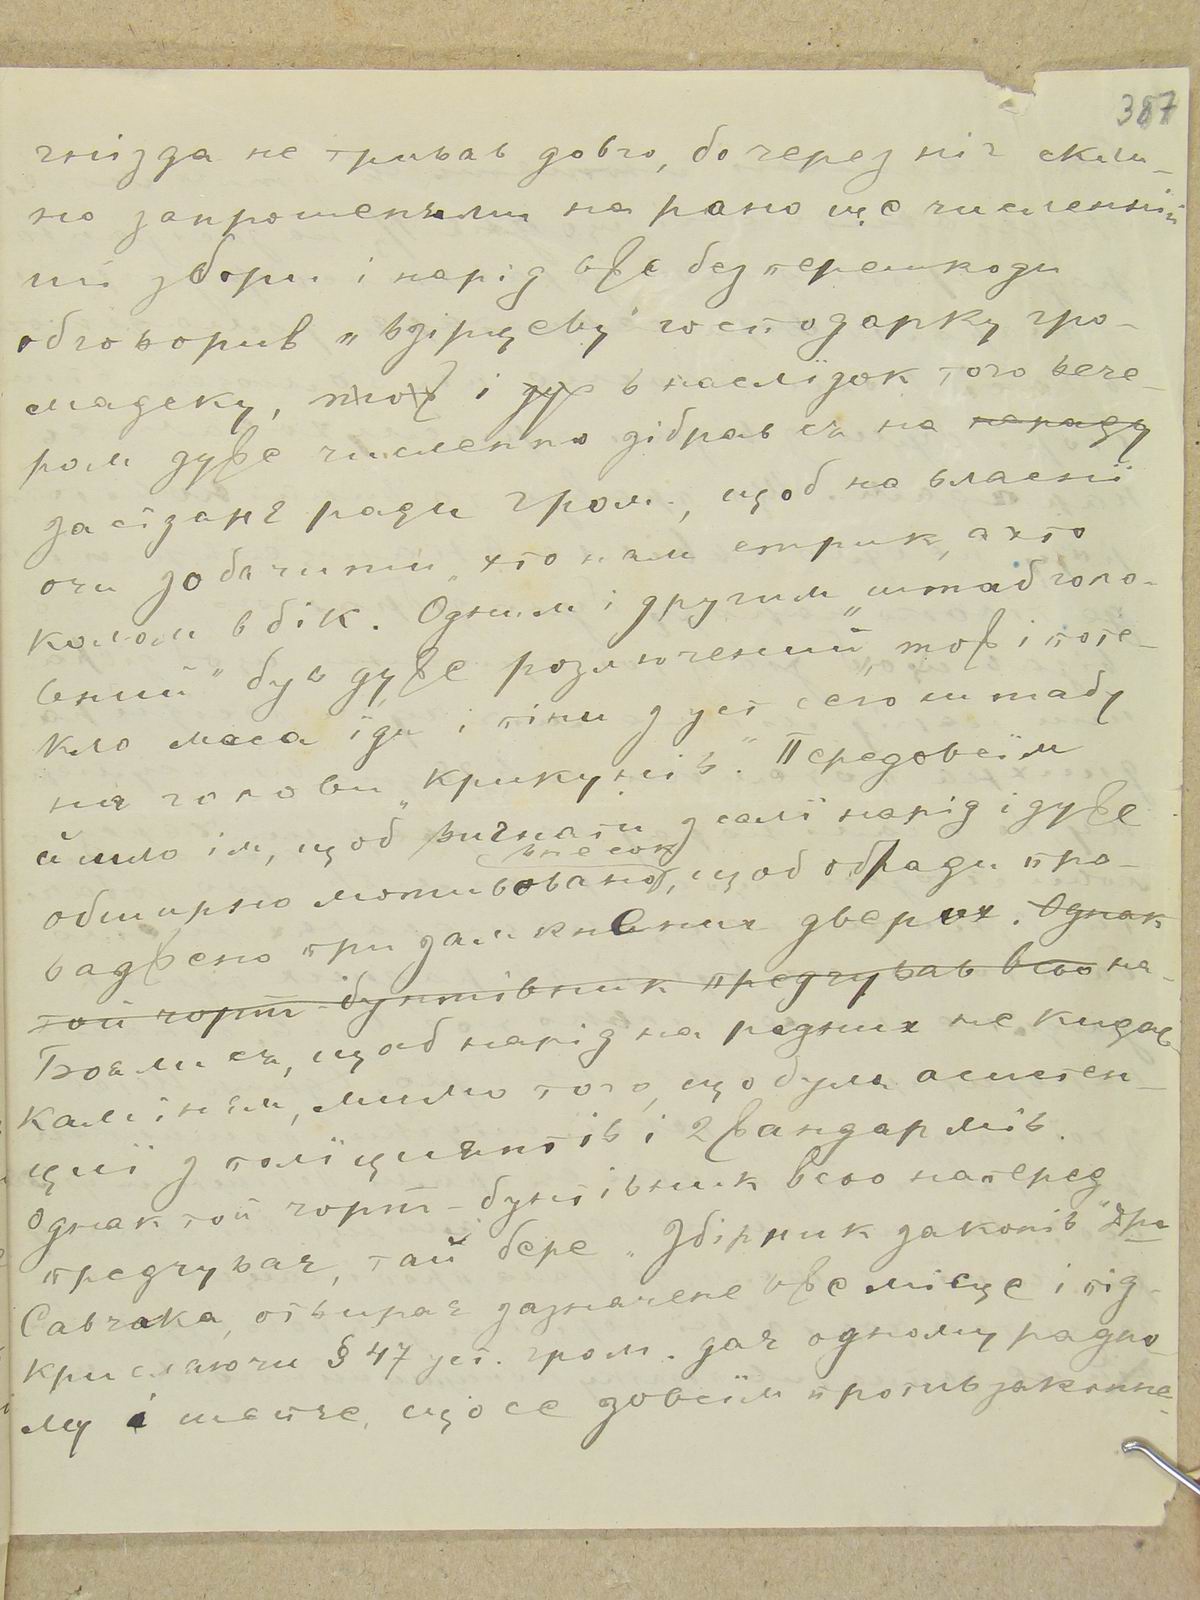 387
гнізда не тривав довго, бо через ніч скли-
но запрошенями на рано ще численній
ші збори і нарід вже без перешкоди
обговорив „взірцеву" господарку гро-
мадску, тож і дуж в наслїдок того вече-
ром дуже численно зібрав ся на нараду
засїданє ради гром., щоб на власнї
очи добачити „хто нам стрик, а хто
колом в бік. Одним і другим „штаб голо-
вний" був дуже розлючений, тож і поте-
кло маса їди і піни з уст сего штабу
на голови „крикунів". Передовсїм
йшло їм, щоб вигнати з салї нарід і дуже
внесок
обширно мотивовано, щоб обради про-
ваджено при замкнених дверох. Однак
той чорт бунтівник предчував всьо на-
Бояли ся, щоб нарід на радних не кидав
камїнєм, мимо того, що були асистен-
циї з полїциянтів і 2 жандармів.
Однак той чорт-бунтівник всьо наперед
предчуває, тай бере „Збірник законів" Дра
Савчака, отвирає зазначене вже місце і під-
крислюючи § 47 уст. гром. дає одному радно-
му і шепче, що се зовсїм противзаконне-